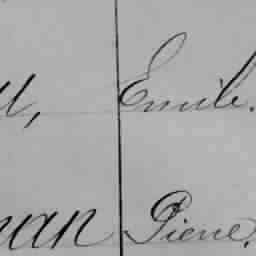 ll, Emile.
nan Pierre.